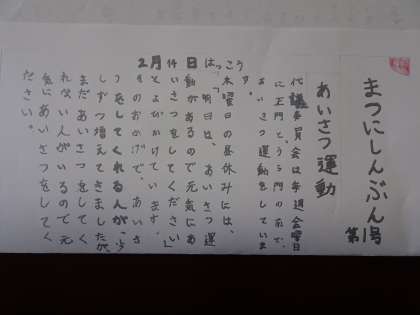 まつにしんぶん
第1号
2月14日はっこう
あいさつ運動
代議委員会は毎週金曜日
に正門とうら門の前で、
あいさつ運動をしていま
す。
木曜日の昼休みには、
「明日は、あいさつ運
動があるので元気にあ
いさつをしてください」
とよびかけています。
そのおかげで、あいさ
つをしてくれる人が、少
しずつ増えてきましたが、
まだあいさつをしてく
れない人がいるので元
気にあいさつをしてく
ださい。